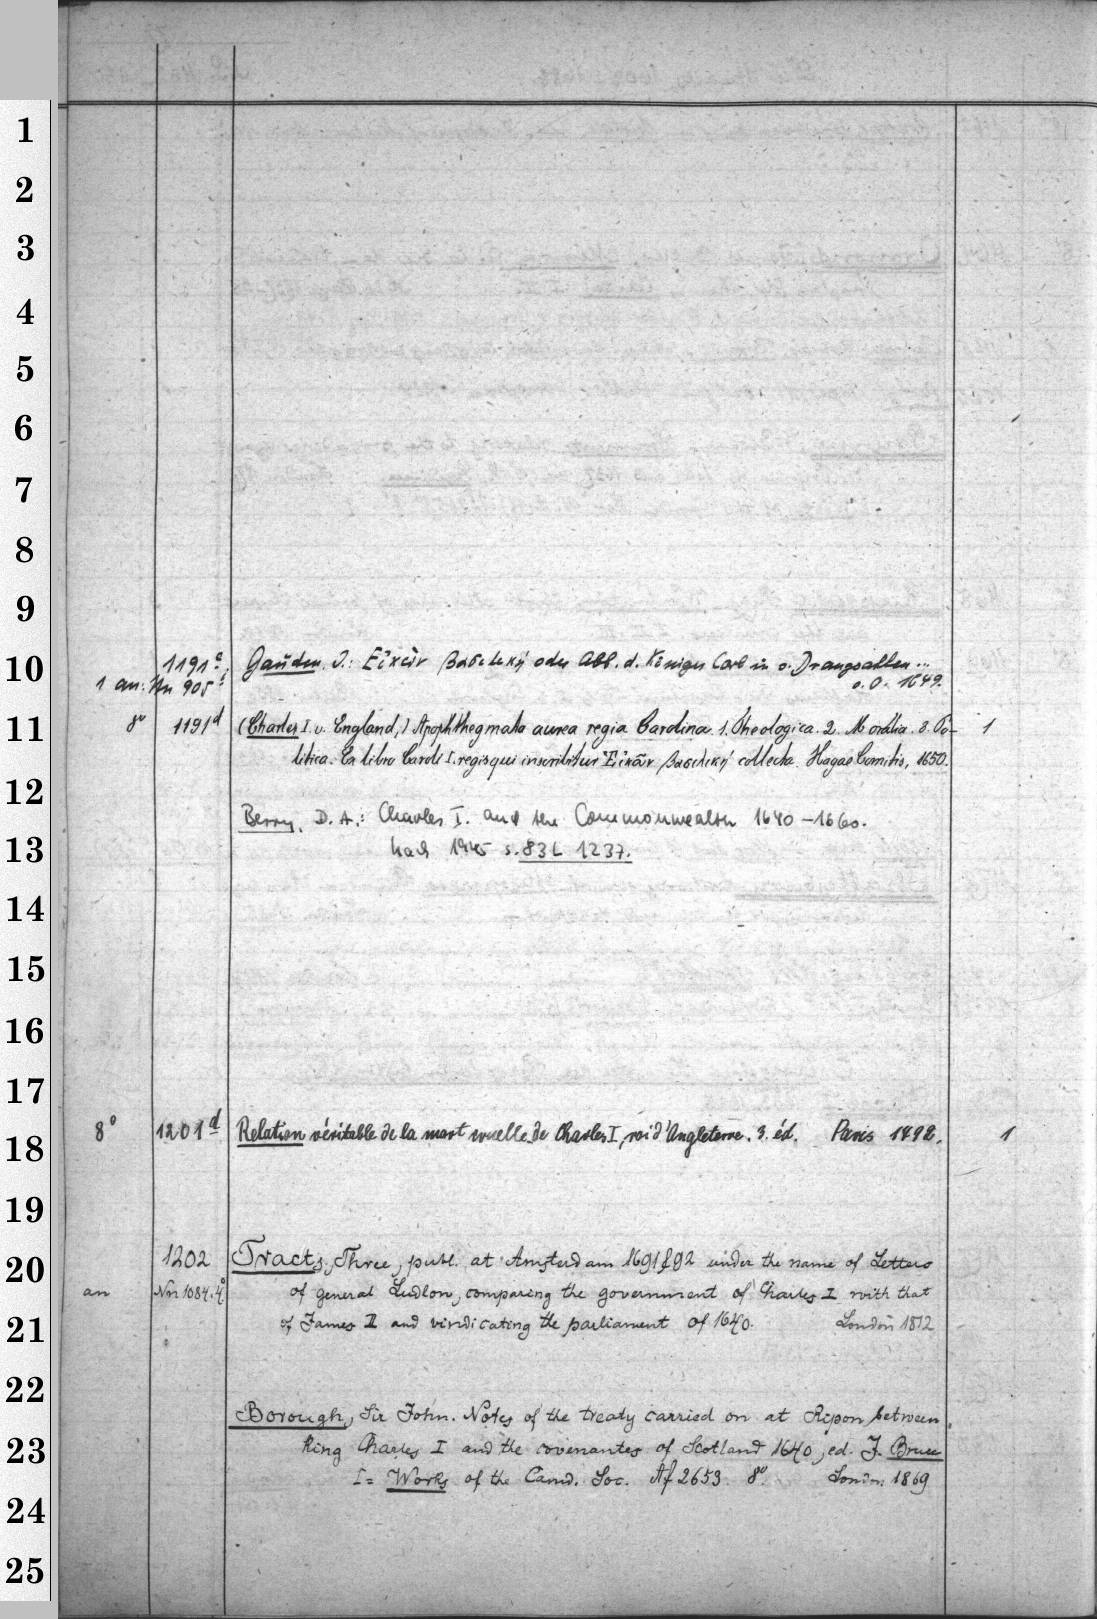 1
2
3
4
5
6
7
8
9
10 1191c Gauden, J.: Εἰκὼν βασιλική oder Abb. d. Königes Carl in s. Drangsallen...
1 an: Nn 905 o. O. 1649.
11 8° 1191d (Charles I. v. England,) Apophthegmata aurea regia Carolina. 1. Theologica. 2. Moralia. 3. Po- 1
litica. Ex libro Caroli I. regis qui inscribitur Εἰκὼν βασιλική collecta. Hagae Comitis, 1650.
12
Berry, D. A.: Charles I. and the Commonwealth 1640-1660.
13 nach 1945 s. 83 L 1237.
14
15
16
17
18 8° 1201d Relation véritable de la mort cruelle de Charles I, roi d'Angleterre. 3. éd. Paris 1792. 1
19
20 1202 Tracts, Three, publ. at Amsterdam 1691 & 92 under the name of Letters
an Nn 1084. 4° of general Ludlow, comparing the government of Charles I with that
21 of James II and vindicating the parliament of 1640. London 1812
22
Borough, Sir John. Notes of the treaty carried on at Ripon between
23 King Charles I and the covenantes of Scotland 1640, ed. J. Bruce
I = Works of the Camd. Soc. Af 2653. 8°. London 1869
24
25